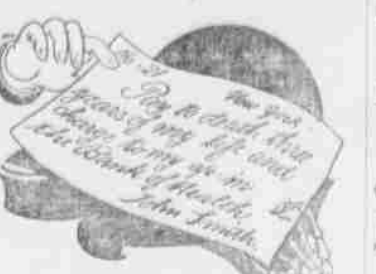 No 27 New York
Pay to death three
years of my life and
charge to my a/c in
the Bank of Health.
John Smith